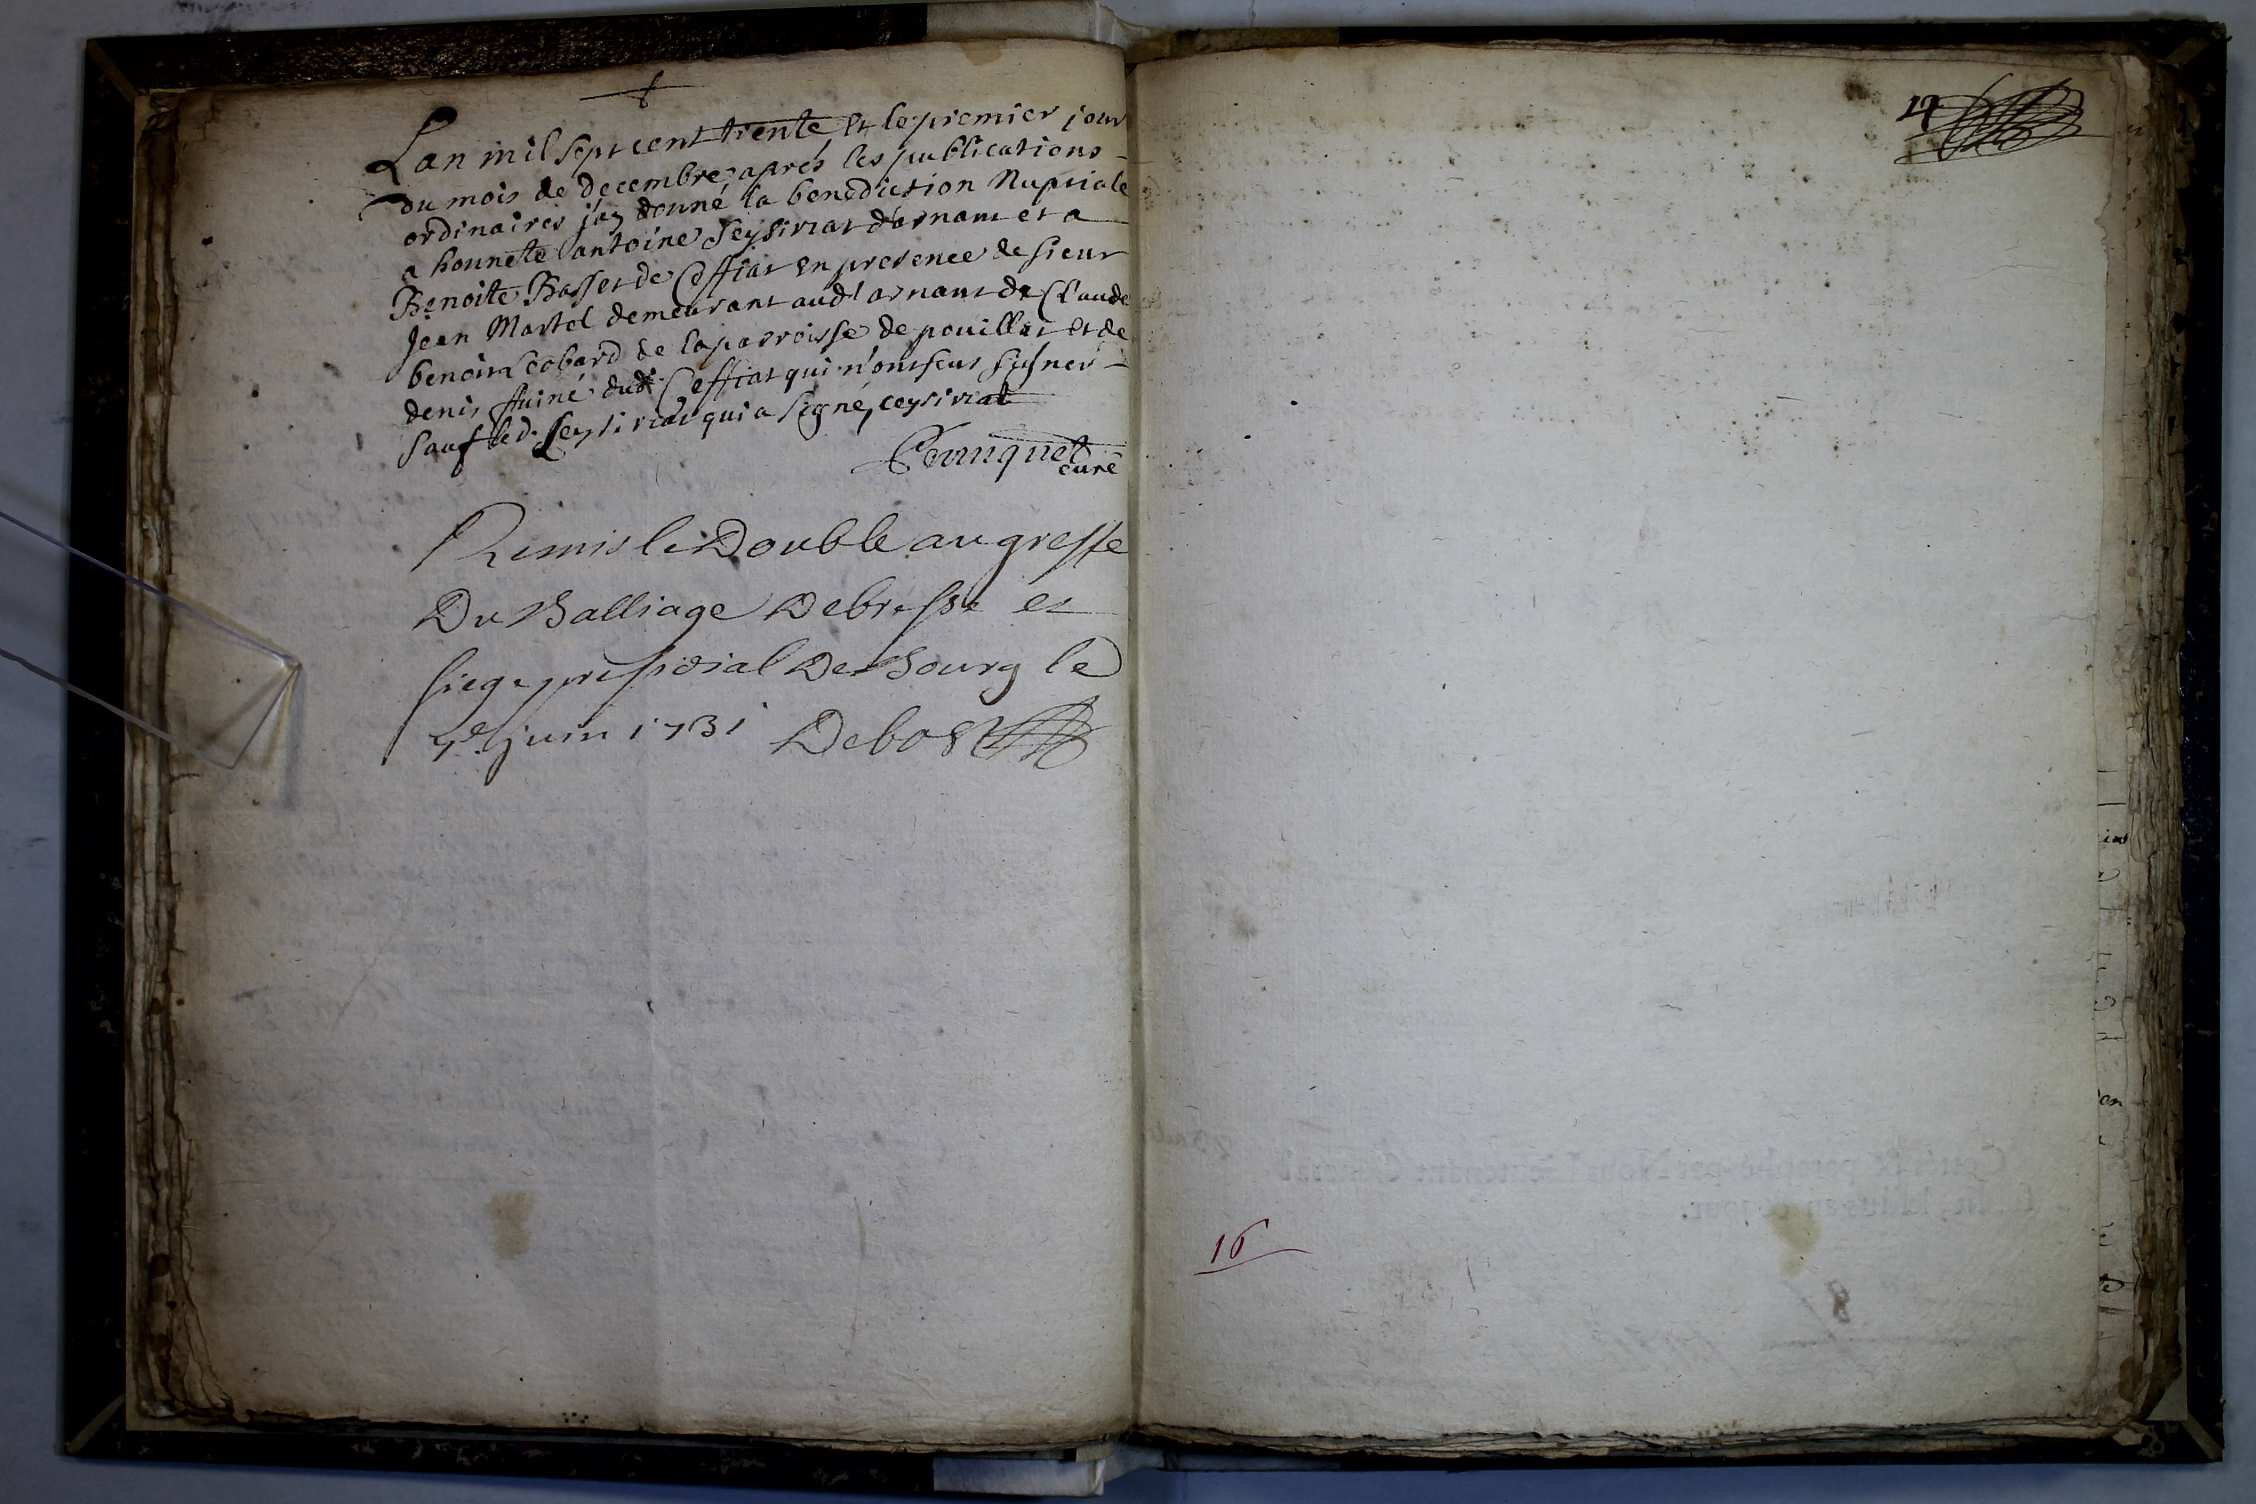 Lan mil sept cent trente et le premier jour
du mois de decembre aprés les publications
ordinaires j'ay donné la benediction Nuptiale
a honnete antoine Seysiriat d'arnant et a
Benoite Basset de Ceffiat en presence de sieur
Jean Martel demeurant aud' arnant de Claude
benoim cobard de la parroisse de pouillat et de
denis ffuiné dudt Ceffiat qui n'ont sceut signer
sauf led. Seysiriat qui a signé, ceysiriat
curé
Remis le Double au greffe
Du Balliage De bresse et
siege presidial De Bourg le
7e. juin 1731 Debost
17
16